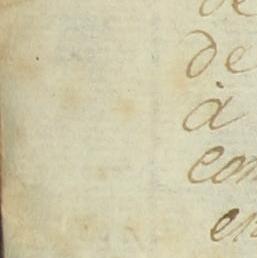 de
de
à
com
en